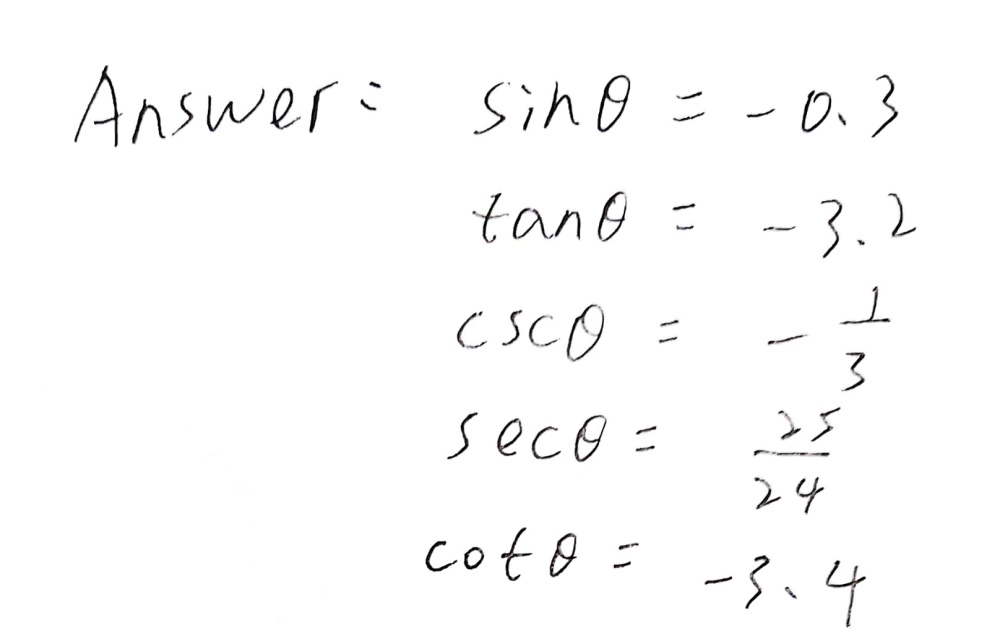 Answer: sinθ = -0.3
tanθ = -3.2
cscθ = -1/3
secθ = 25/24
cotθ = -3.4